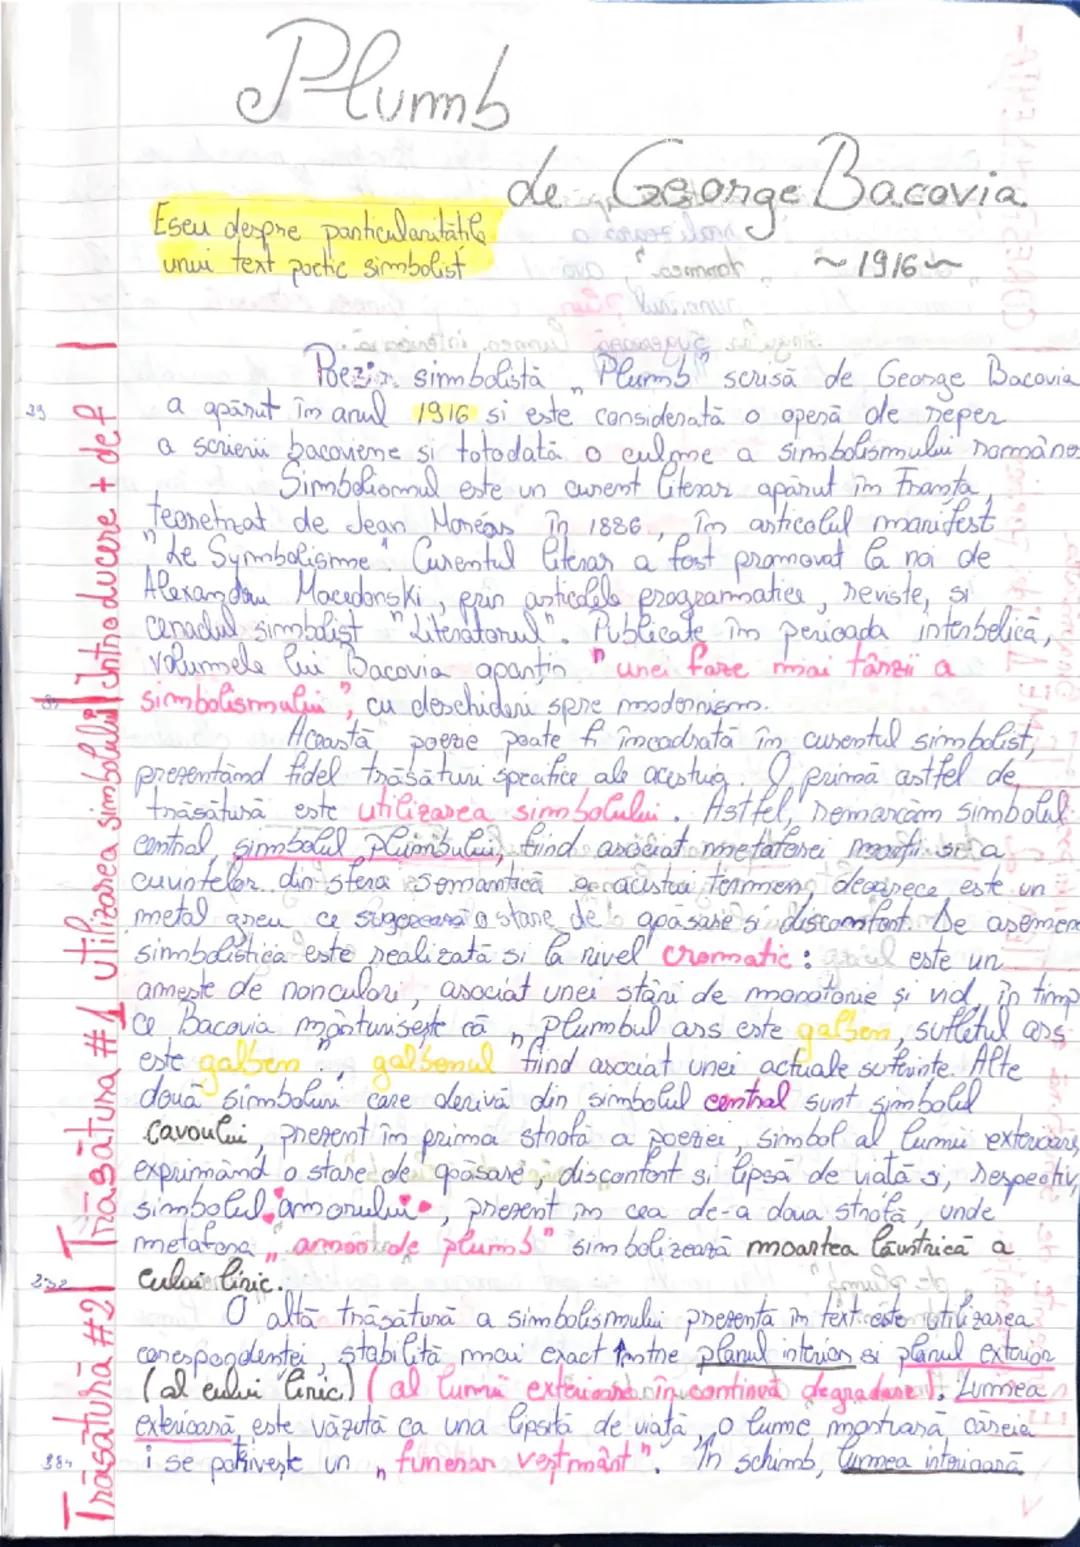 Plumb
de George Bacovia
Eseu despre particularitățile
unui text poetic simbolist
~1916~
Poezia simbolistă „Plumb" scrisă de George Bacovia
29
a apărut în anul 1916 si este considerată o operă de reper
a scrierii bacoviene si totodată o culme a simbolismului românes
Simbolismul este un curent literar apărut în Franța,
teoretizat de Jean Moréas în 1886, în articolul manifest
"Le Symbolisme". Curentul literar a fost promovat la noi de
Alexandru Macedonski, prin articolele programatice, reviste, si
cenaclul simbolist "Literatorul". Publicate în perioada interbelică,
volumele lui Bacovia aparțin "unei faze mai târzii a
simbolismului", cu deschideri spre modernism.
Această poezie poate fi încadrată în curentul simbolist,
prezentând fidel trăsături specifice ale acestuia. O primă astfel de
trăsătură este utilizarea simbolului. Astfel, remarcăm simbolul
central, simbolul plumbului, fiind asociat metaforei morții si a
cuvintelor din sfera semantică a acestui termen, deoarece este un
metal greu ce sugerează o stare de apăsare si discomfort. De asemen
simbolistica este realizată si la nivel cromatic: griul este un
ameste de nonculori, asociat unei stări de monotonie și vid, în timp
ce Bacovia mărturisește că „Plumbul ars este galben, sufletul ars
este galben", galbenul fiind asociat unei actuale suferințe. Alte
două simboluri care derivă din simbolul central sunt simbolul
cavoului, prezent în prima strofă a poeziei, simbol al lumii exterioare,
exprimând o stare de apăsare, discomfort si lipsă de viață si, respectiv,
simbolul amorului, prezent în cea de-a doua strofă, unde
metafora „amor de plumb" simbolizează moartea lăuntrică a
232
eului liric.
O altă trăsătură a simbolismului prezentă în text este utilizarea
corespondenței, stabilită mai exact între planul interior si planul exterior
(al eului liric) (al lumii exterioare în continuă degradare). Lumea
exterioară este văzută ca una lipsită de viață, o lume mortuară, căreia
384
i se potrivește un „funerar vestmânt". În schimb, lumea interioară
Introducere + def
Trăsătura #1 utilizarea simbolului
Trăsătură #2